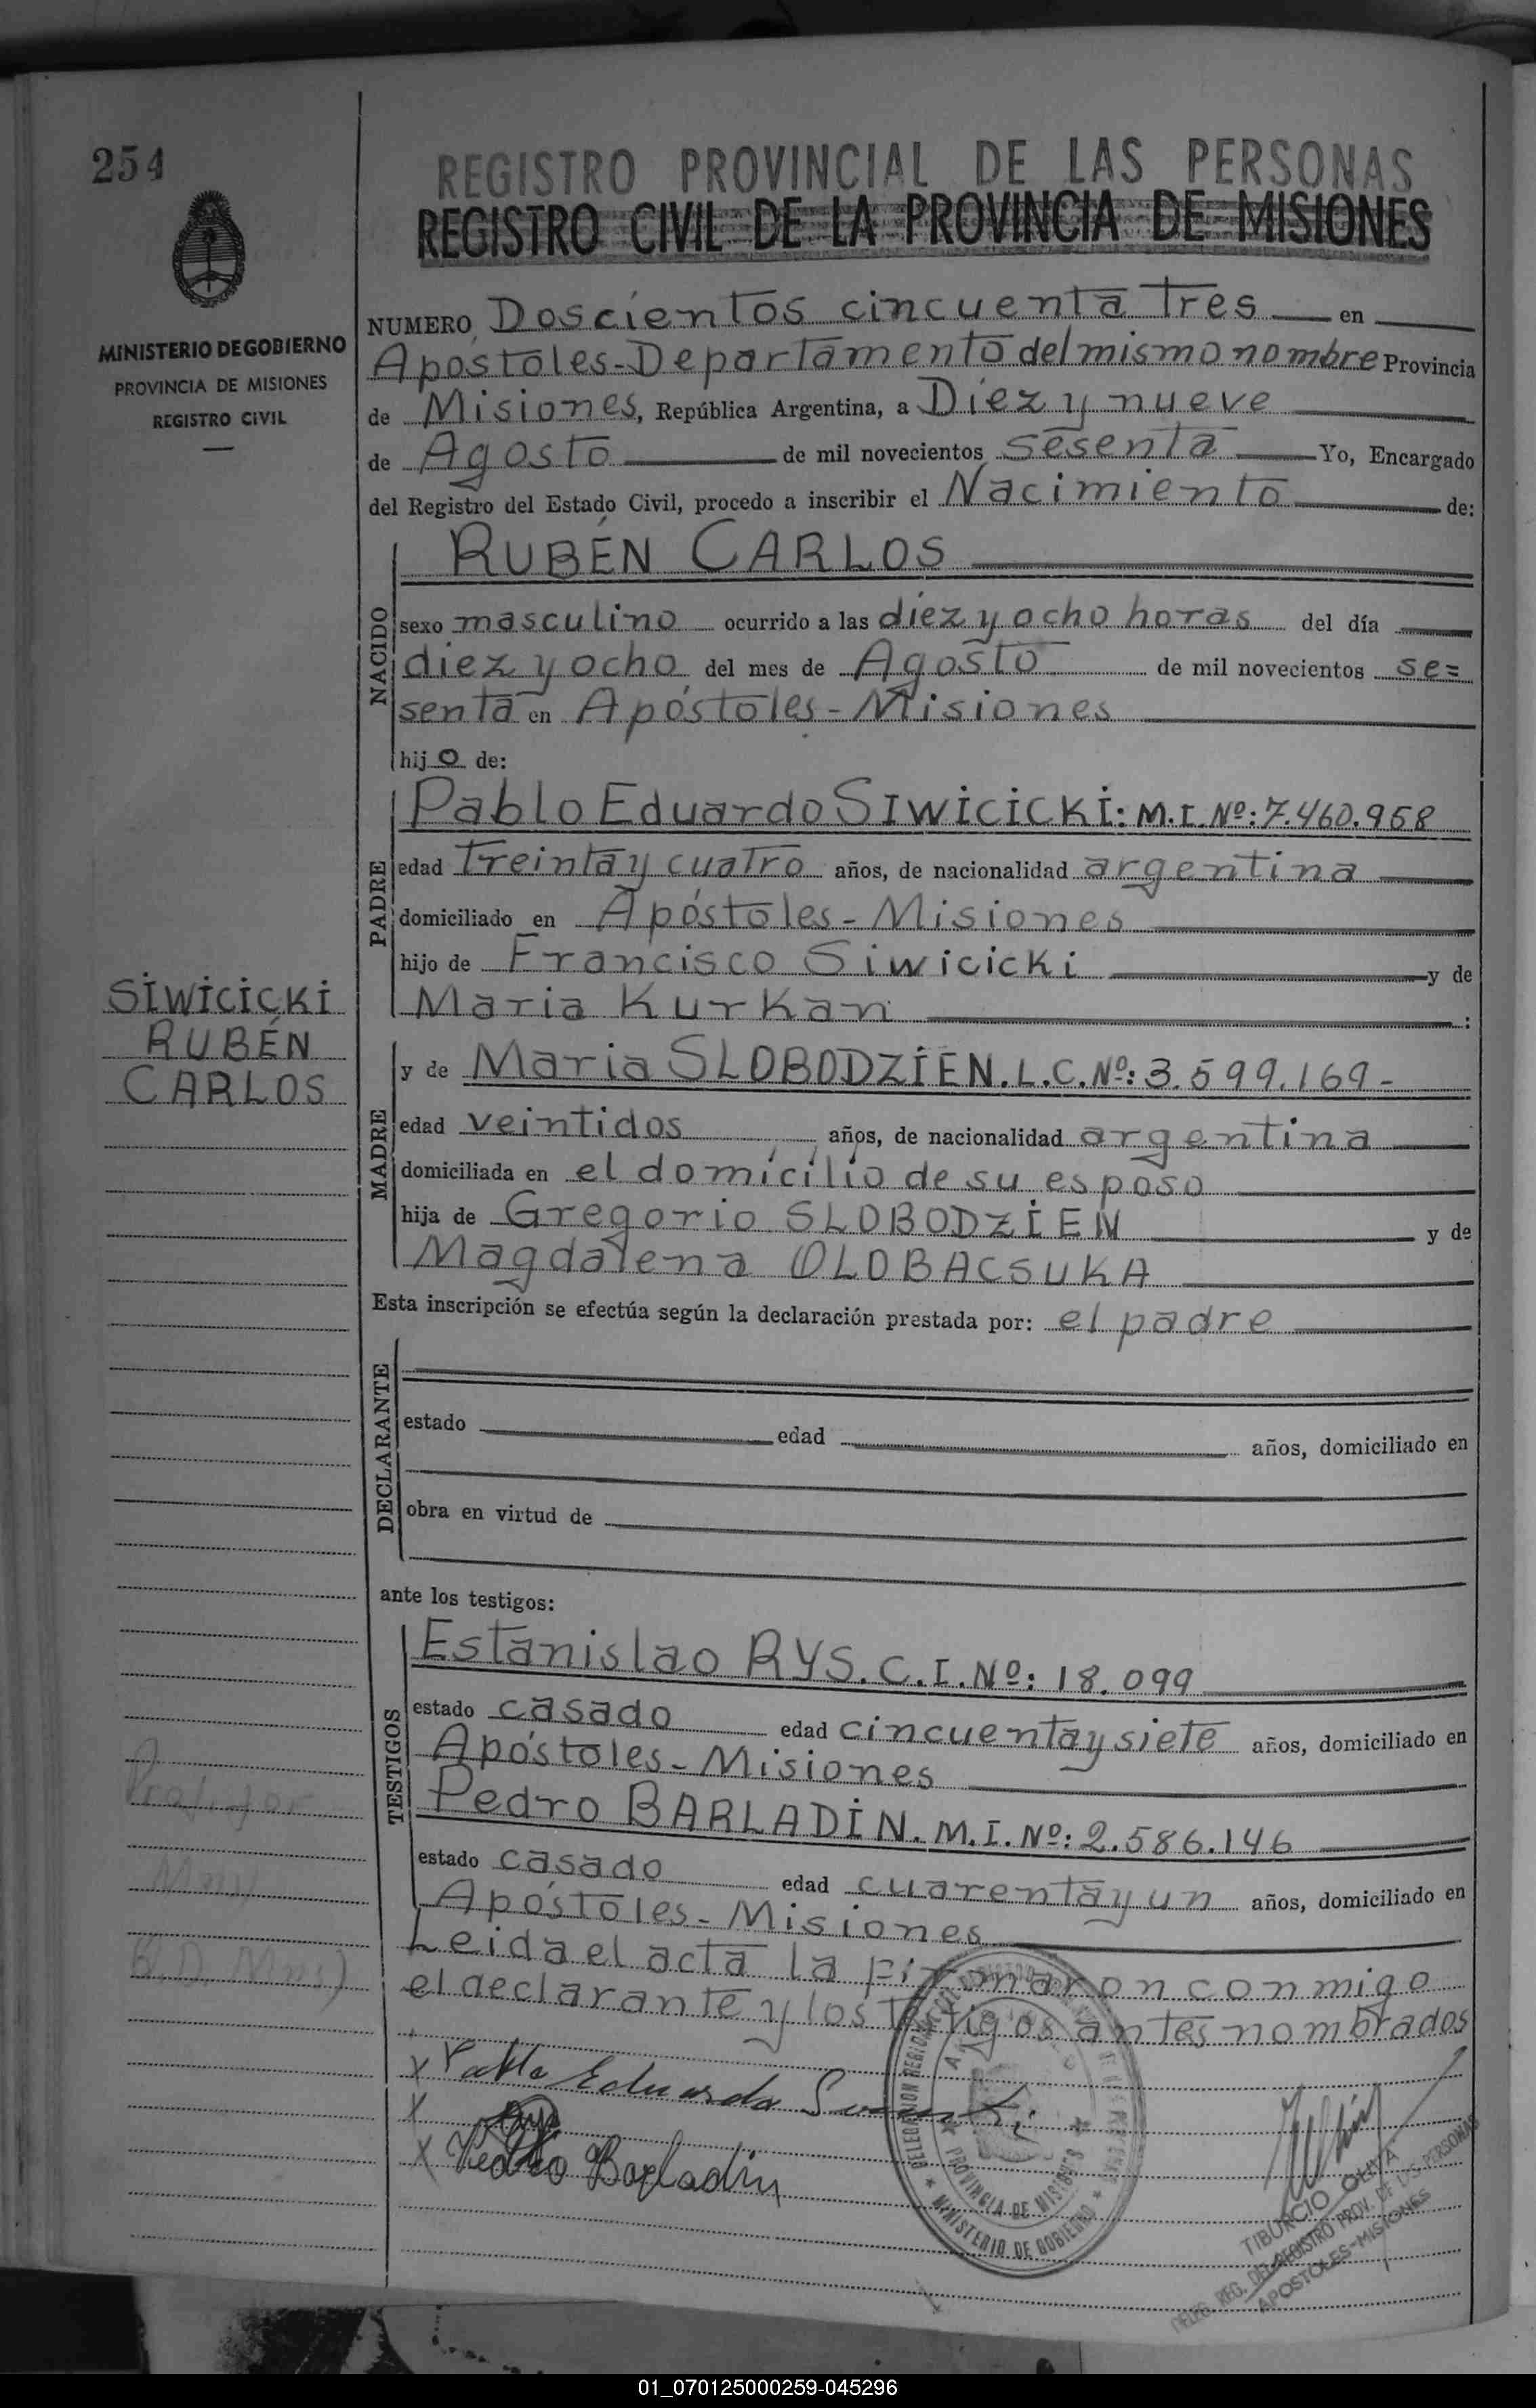 254
REGISTRO PROVINCIAL DE LAS PERSONAS
REGISTRO CIVIL DE LA PROVINCIA DE MISIONES
MINISTERIO DE GOBIERNO
PROVINCIA DE MISIONES
REGISTRO CIVIL
NUMERO Doscientos cincuenta Tres en
Apóstoles-Departamento del mismo nombre Provincia
de Misiones, República Argentina, a Diez y nueve
de Agosto de mil novecientos sesenta Yo, Encargado
del Registro del Estado Civil, procedo a inscribir el Nacimiento de:
NACIDO
RUBÉN CARLOS
sexo masculino ocurrido a las diez y ocho horas del día
diez y ocho del mes de Agosto de mil novecientos se=
senta en Apóstoles-Misiones
hijo de:
PADRE
Pablo Eduardo SIWICICKI: M.I.Nº: 7.460.968
edad Treinta y cuatro años, de nacionalidad argentina
domiciliado en Apóstoles-Misiones
hijo de Francisco Siwicicki y de
Maria Kurkan :
SIWICICKI
RUBÉN
CARLOS
MADRE
y de Maria SLOBODZIEN. L.C.Nº: 3.599.169-
edad veintidos años, de nacionalidad argentina
domiciliada en el domicilio de su esposo
hija de Gregorio SLOBODZIEN y de
Magdalena OLOBACSUKA
Esta inscripción se efectúa según la declaración prestada por: el padre
DECLARANTE
estado edad años, domiciliado en
obra en virtud de
ante los testigos:
TESTIGOS
Estanislao RYS. C.I.Nº: 18.099
estado casado edad cincuenta y siete años, domiciliado en
Apóstoles-Misiones
Pedro BARLADIN. M.I.Nº: 2.586.146
estado casado edad cuarenta y un años, domiciliado en
Apóstoles-Misiones
Leida el acta la firmaron conmigo
el declarante y los testigos antes nombrados
x Pablo Eduardo
x
x Pedro Barladin
PROVINCIA DE MISIONES
MINISTERIO DE GOBIERNO
TIBURCIO OLIVA
DELEG. REG. DEL REGISTRO PROV. DE LAS PERSONAS
APOSTOLES-MISIONES
01_070125000259-045296